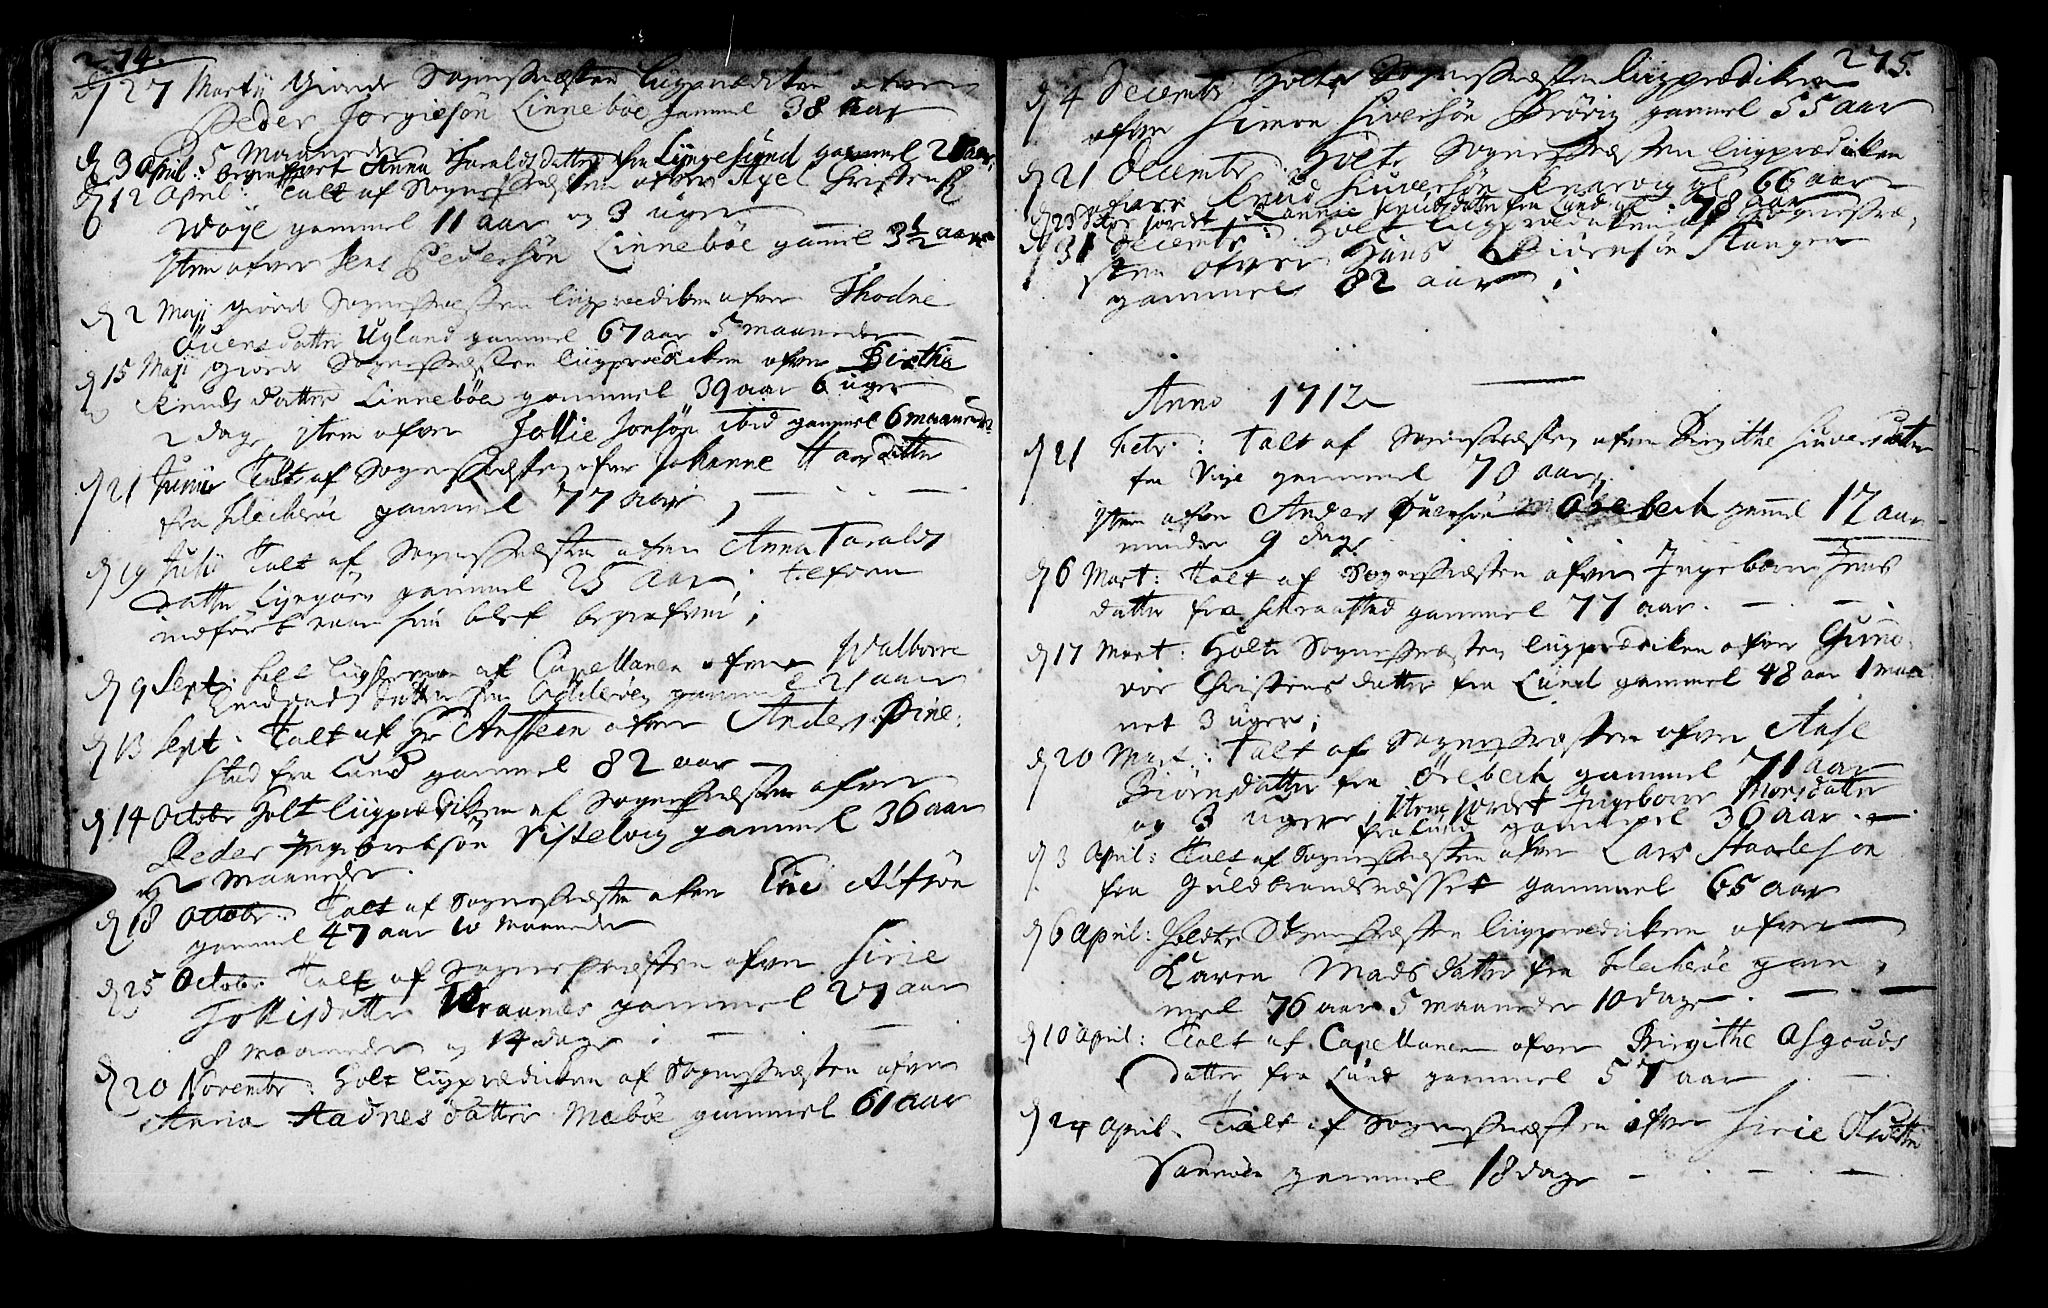 274.
d 27 Martij Giorde Sognepræsten liigprædiken ofver
Peder Jorgiesön Linneböe gammel 38 aar
5 Maaneder
d 3 April: begrafvet Anna Taraldsdatter fra Lyngesund gammel
d 12 April: Talt af Sognepræsten ofver Axel Christens
Woye gammel 11 aar og 3 uger
Item ofver Jens Pedersön Linneböe gamel 3½ aar
d 2 Maji giorde Sognepræsten liigprædiken ofver Thodne
Öuensdatter Ugland gammel 67 aar 5 maaneder
d 15 Maji giorde Sognepræsten liigprædiken ofver Birthe
Knudsdatter Linneböe gammel 39 aar 6 uger
2 dage, Item ofver Jollie Jonsön ibid gammel 6 maaneder
d 21 Junii Talt af Sognepræsten ofver Johanne
fra Flecheröe gammel 77 aar
d 19 Julii Talt af Sognepræsten ofver Anna Taralds
datter Lyngöer gammel 25 aar tilforn
indfört naar hun blef begrafven;
d 9 Sept: holt af Capellanen ofver Walborre
datter fra gammel 21 aar
d 13 Sept: Talt af Hr Ansteen ofver Anders Pine:
stad fra Lund gammel 82 aar
d 14 Octobr Holt liigprædiken af Sognepræsten ofver
Peder Ingebretsön Vistelvig gammel 36 aar
og 2 Maaneder.
d 18 Octobr: Talt af Sognepræsten ofver
gammel 47 aar 10 Maaneder
d 25 Octobr Talt af Sognepræsten ofver Sirie
Jollisdatter gammel 21 aar
8 maaneder og 14 dage
d 20 Novembr: Holt liigprædiken af Sognepræsten ofver
Anna Aadnesdatter Mæböe gammel 61 aar
275.
d 4 Decembr Holte Sognepræsten liigprædiken
ofver Simon Siversön Brövig gammel 55 aar
d 21 Decembr: Holte Sognepræsten liigprædiken
ofver Knud Siuversön gl 66 aar
d 23 jordet Knudsdatter fra Lund gl: 78 aar
d 31 Decembr: Holt liigprædiken af Sognepræ;
sten ofver Hans Stangen
gammel 82 aar;
Anno 1712
d 21 Febr: Talt af Sognepræsten ofver Birgithe Siuversdatter
fra Vige gammel 70 aar;
Item ofver Anders Öuensön Örebech gamel 17 aar
minder 9 dage
d 6 Mart: Talt af Sognepræsten ofver Ingeborre Jens
datter fra gammel 77 aar.
d 17 Mart: Holte Sognepræsten liigprædiken ofver Guno:
vor Christensdatter fra Lund gammel 48 aar 1 maa
net 3 uger;
d 20 Mart: Talt af Sognepræsten ofver Aase
Biörnsdatter fra Örebech gammel 71 aar
og 3 uger, Item jordet Ingeborre Mons datter
fra Lund gammel 36 aar.
d 3 April: Talt af Sognepræsten ofver Lars Staalesön
fra Guldbrandsnesset gammel 65 aar
d 6 April: Holdte Sognepræsten liigprædiken ofver
Karen Madsdatter fra Flecheröe gam:
mel 76 aar 5 maaneder 10 dage.
d 10 April: Talt af Capellanen ofver Birgithe Asgouds
datter fra Lund gammel 57 aar
d 24 April. Talt af Sognepræsten ofver Sirie Olsdatter
Sannöen gammel 18 dage